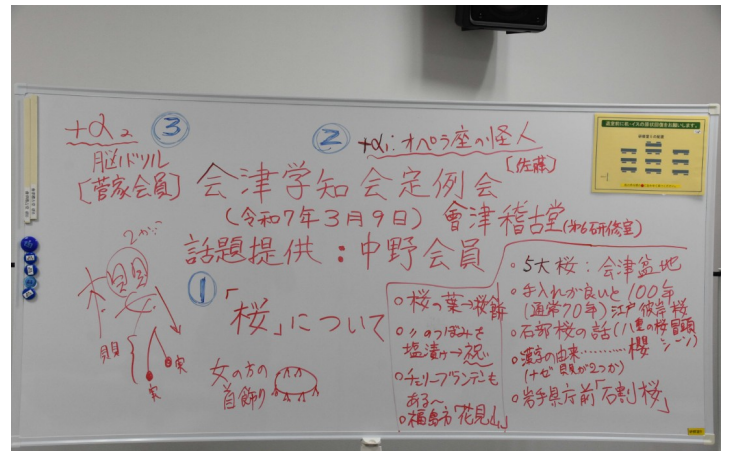 +α2 ③
② +α1: オペラ座の怪人
脳ドリル
〔佐藤〕
〔菅家会員〕
会津学知会定例会
(令和7年3月9日) 會津稽古堂(第6研修室)
話題提供：中野会員
①「桜」について
2かい
木貝貝
女
貝
実
実
女の方の
首飾り
○桜の葉→桜餅
○〃のつぼみも
塩漬け→祝い
○チェリーブランデーも
ある〜
○福島市「花見山」
○5大桜：会津盆地
○手入れが良いと100年
(通常70年) 江戸彼岸桜
○石部桜の話(八重の桜冒頭
シーン)
○漢字の由来………櫻
(ナゼ貝が2つか)
○岩手県庁前「石割桜」